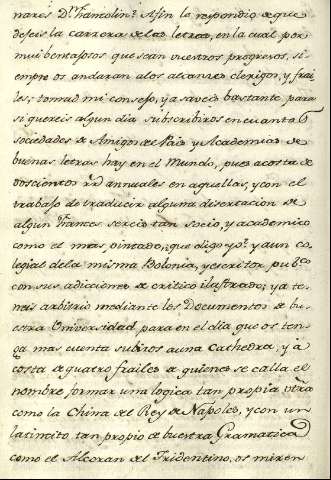 nares D.ⁿ Hancolin? Afin la respondio a que
dejeis la carrera de las letras, en la cual por
mui bentajosos que sean vuestros progresos, si
empre os andaran a los alcanses clerigos, y frai
les, tomad mi consejo, ya saveis bastante para
si quereis algun dia subscribiros en cuanta
sociedades de Amigos del Pais y Academias de
buenas letras hay en el Mundo, pues a costa de
doscientos rs annuales en aquellas, y con el
trabajo de traducir alguna disertacion de
algun Frances sereis tan socio, y academico
como el mas pintado, que digo yo? y aun co
legial de la misma Bolonia, y escritor pub.co
con sus adicciones de critico ilustrado; ya te
neis arbitrio mediante los Documentos de bu
estra Universidad para en el dia que os ten
ga mas cuenta subiros a una Cathedra, y à
costa de quatro frailes de quienes se calla el
nombre formar una logica tan propia vtra
como la China del Rey de Napoles, y con un
latincito tan propio de buestra Gramatica
como el Alcoran del Tridentino, os miren